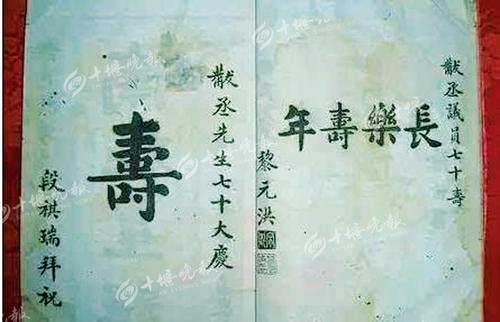 黻丞議員七十壽
長樂壽年
黎元洪
黻丞先生七十大慶
壽
段祺瑞拜祝
十堰晚報
十堰晚報
十堰晚報
十堰晚報